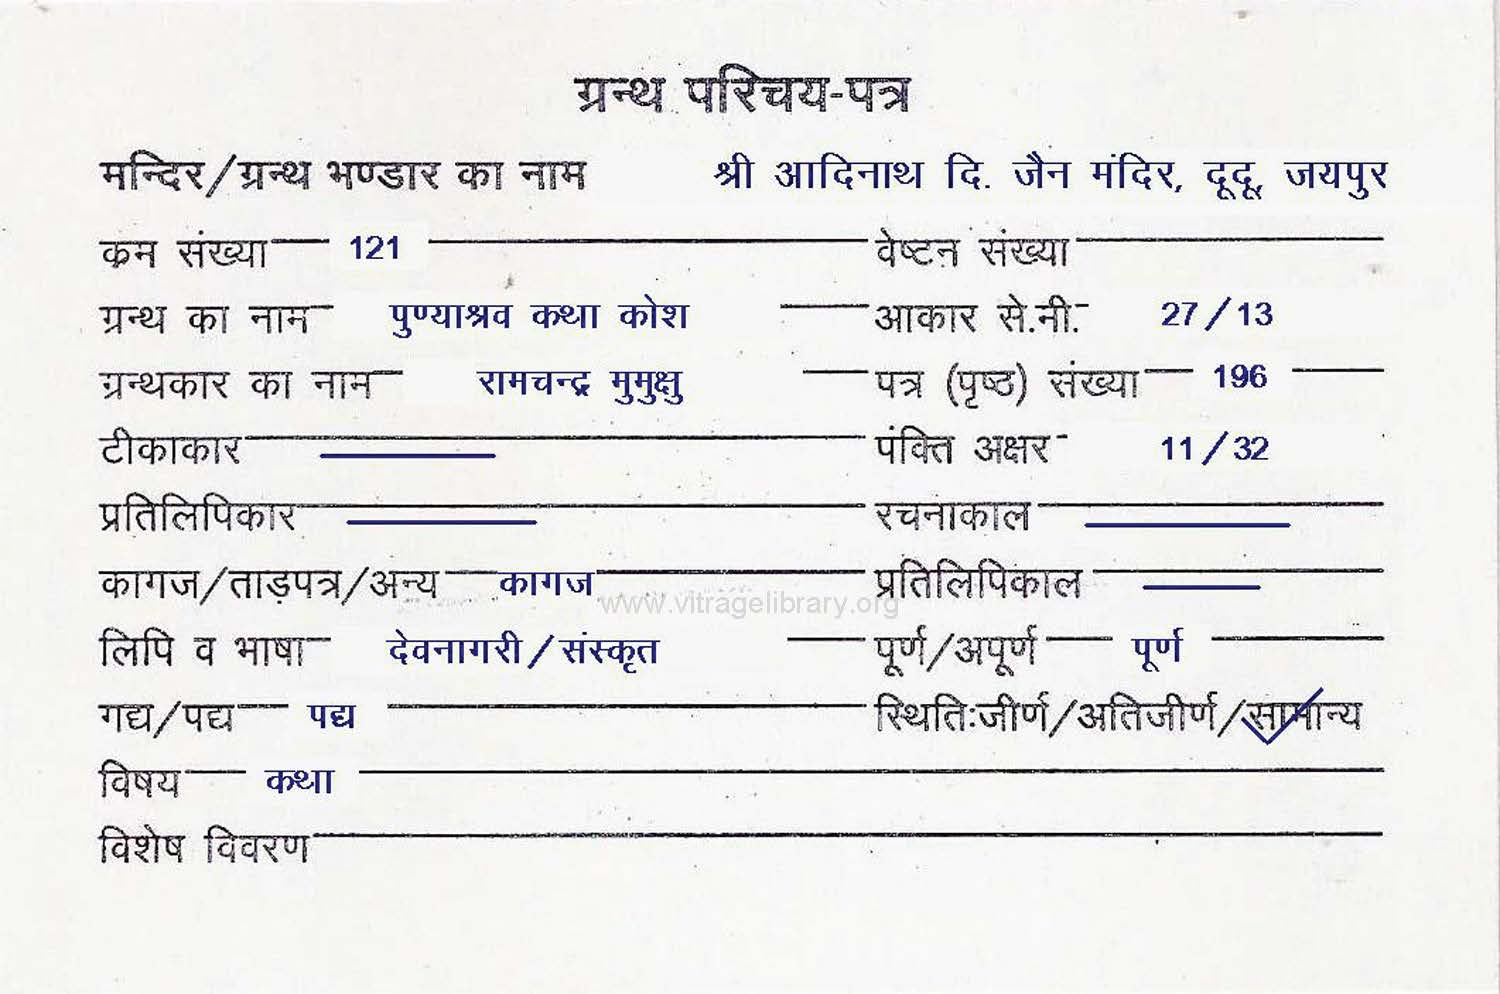 ग्रन्थ परिचय-पत्र
मन्दिर/ग्रन्थ भण्डार का नाम श्री आदिनाथ दि. जैन मंदिर, दूदू, जयपुर
क्रम संख्या 121 वेष्टन संख्या
ग्रन्थ का नाम पुण्याश्रव कथा कोश आकार से.मी. 27/13
ग्रन्थकार का नाम रामचन्द्र मुमुक्षु पत्र (पृष्ठ) संख्या 196
टीकाकार पंक्ति अक्षर 11/32
प्रतिलिपिकार रचनाकाल
कागज/ताड़पत्र/अन्य कागज प्रतिलिपिकाल
www.vitragelibrary.org
लिपि व भाषा देवनागरी/संस्कृत पूर्ण/अपूर्ण पूर्ण
गद्य/पद्य पद्य स्थितिःजीर्ण/अतिजीर्ण/सामान्य
विषय कथा
विशेष विवरण